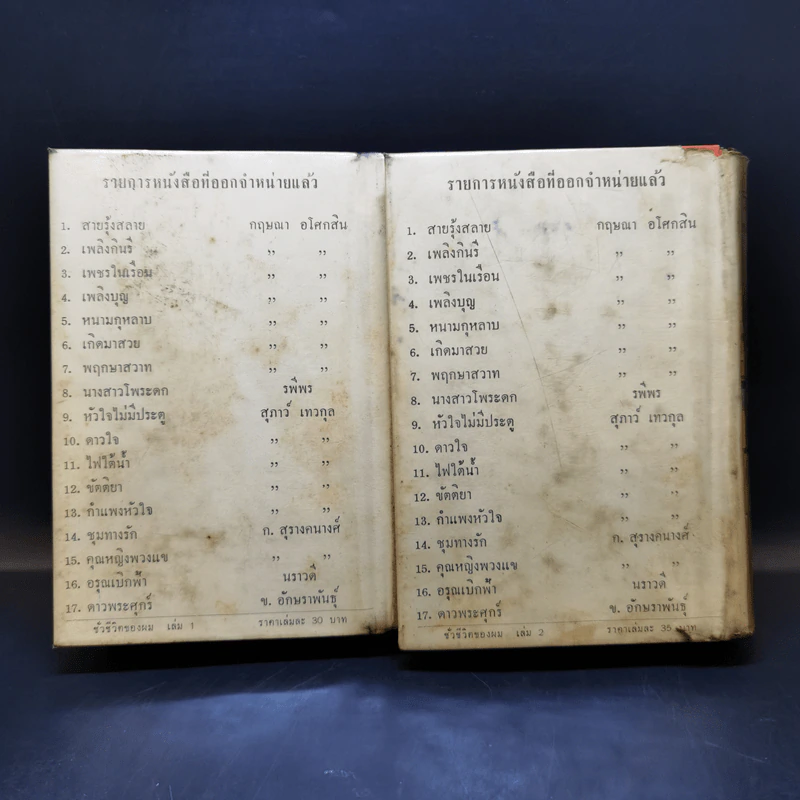 รายการหนังสือที่ออกจำหน่ายแล้ว
1. สายรุ้งสลาย กฤษณา อโศกสิน
2. เพลิงกินรี ,, ,,
3. เพชรในเรือน ,, ,,
4. เพลิงบุญ ,, ,,
5. หนามกุหลาบ ,, ,,
6. เกิดมาสวย ,, ,,
7. พฤกษาสวาท ,, ,,
8. นางสาวโพระดก รพีพร
9. หัวใจไม่มีประตู สุภาว์ เทวกุล
10. ดาวใจ ,, ,,
11. ไฟใต้น้ำ ,, ,,
12. ขัตติยา ,, ,,
13. กำแพงหัวใจ ,, ,,
14. ชุมทางรัก ก. สุรางคนางศ์
15. คุณหญิงพวงแข ,, ,,
16. อรุณเบิกฟ้า นราวดี
17. ดาวพระศุกร์ ข. อักษราพันธุ์
ชั่วชีวิตของผม เล่ม 1 ราคาเล่มละ 30 บาท
รายการหนังสือที่ออกจำหน่ายแล้ว
1. สายรุ้งสลาย กฤษณา อโศกสิน
2. เพลิงกินรี ,, ,,
3. เพชรในเรือน ,, ,,
4. เพลิงบุญ ,, ,,
5. หนามกุหลาบ ,, ,,
6. เกิดมาสวย ,, ,,
7. พฤกษาสวาท ,, ,,
8. นางสาวโพระดก รพีพร
9. หัวใจไม่มีประตู สุภาว์ เทวกุล
10. ดาวใจ ,, ,,
11. ไฟใต้น้ำ ,, ,,
12. ขัตติยา ,, ,,
13. กำแพงหัวใจ ,, ,,
14. ชุมทางรัก ก. สุรางคนางศ์
15. คุณหญิงพวงแข ,, ,,
16. อรุณเบิกฟ้า นราวดี
17. ดาวพระศุกร์ ข. อักษราพันธุ์
ชั่วชีวิตของผม เล่ม 2 ราคาเล่มละ 35 บาท